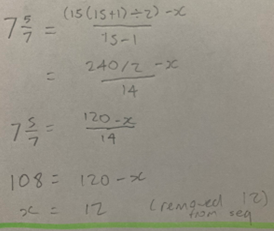 7 5/7 = (15(15+1)÷2) - x / 15-1
= 240/2 - x / 14
7 5/7 = 120 - x / 14
108 = 120 - x
x = 12 (removed 12)
from seq